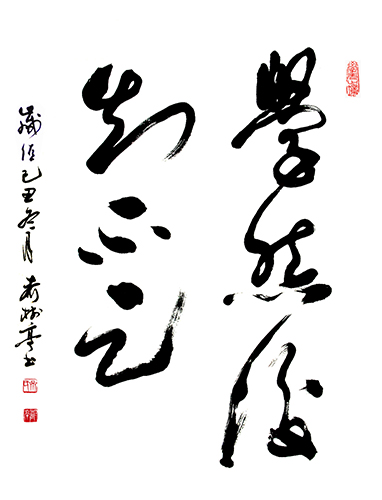 學然後
知不足
歲在己丑冬月 書